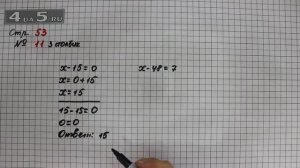 4ДУА5.RU
Стр. 53
№ 11 3 столбик
x-15=0
x=0+15
x=15
15-15=0
0=0
Ответ: 15
x-48=7